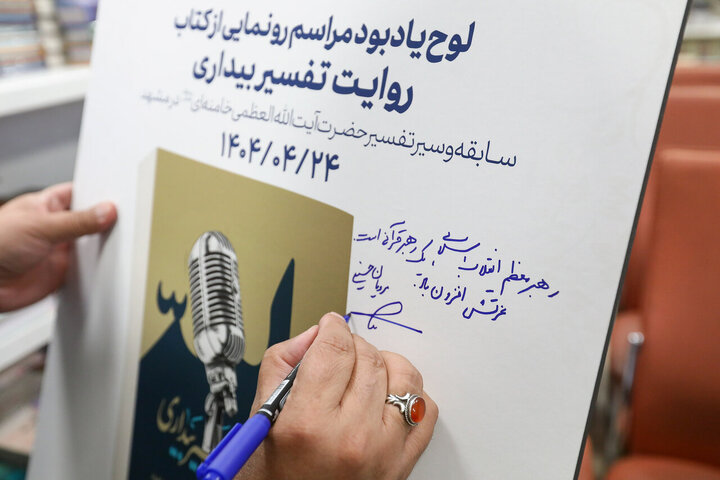 لوح یادبود مراسم رونمایی از کتاب
روایت تفسیر بیداری
سابقه و سیر تفسیر حضرت آیت‌الله العظمی خامنه‌ای در مشهد
۱۴۰۴/۰۴/۲۴
رهبر معظم انقلاب اسلامی یک رهبر قرآنی است.
عزتش افزون باد.
حسینی
تفسیر بیداری